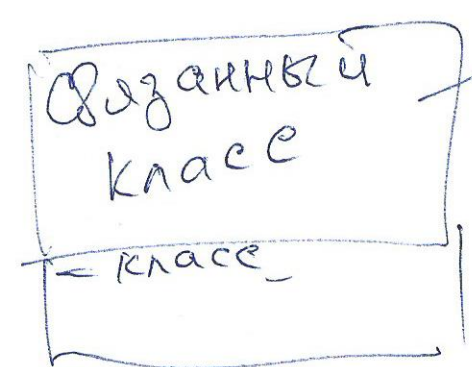 Связанный
класс
- класс_